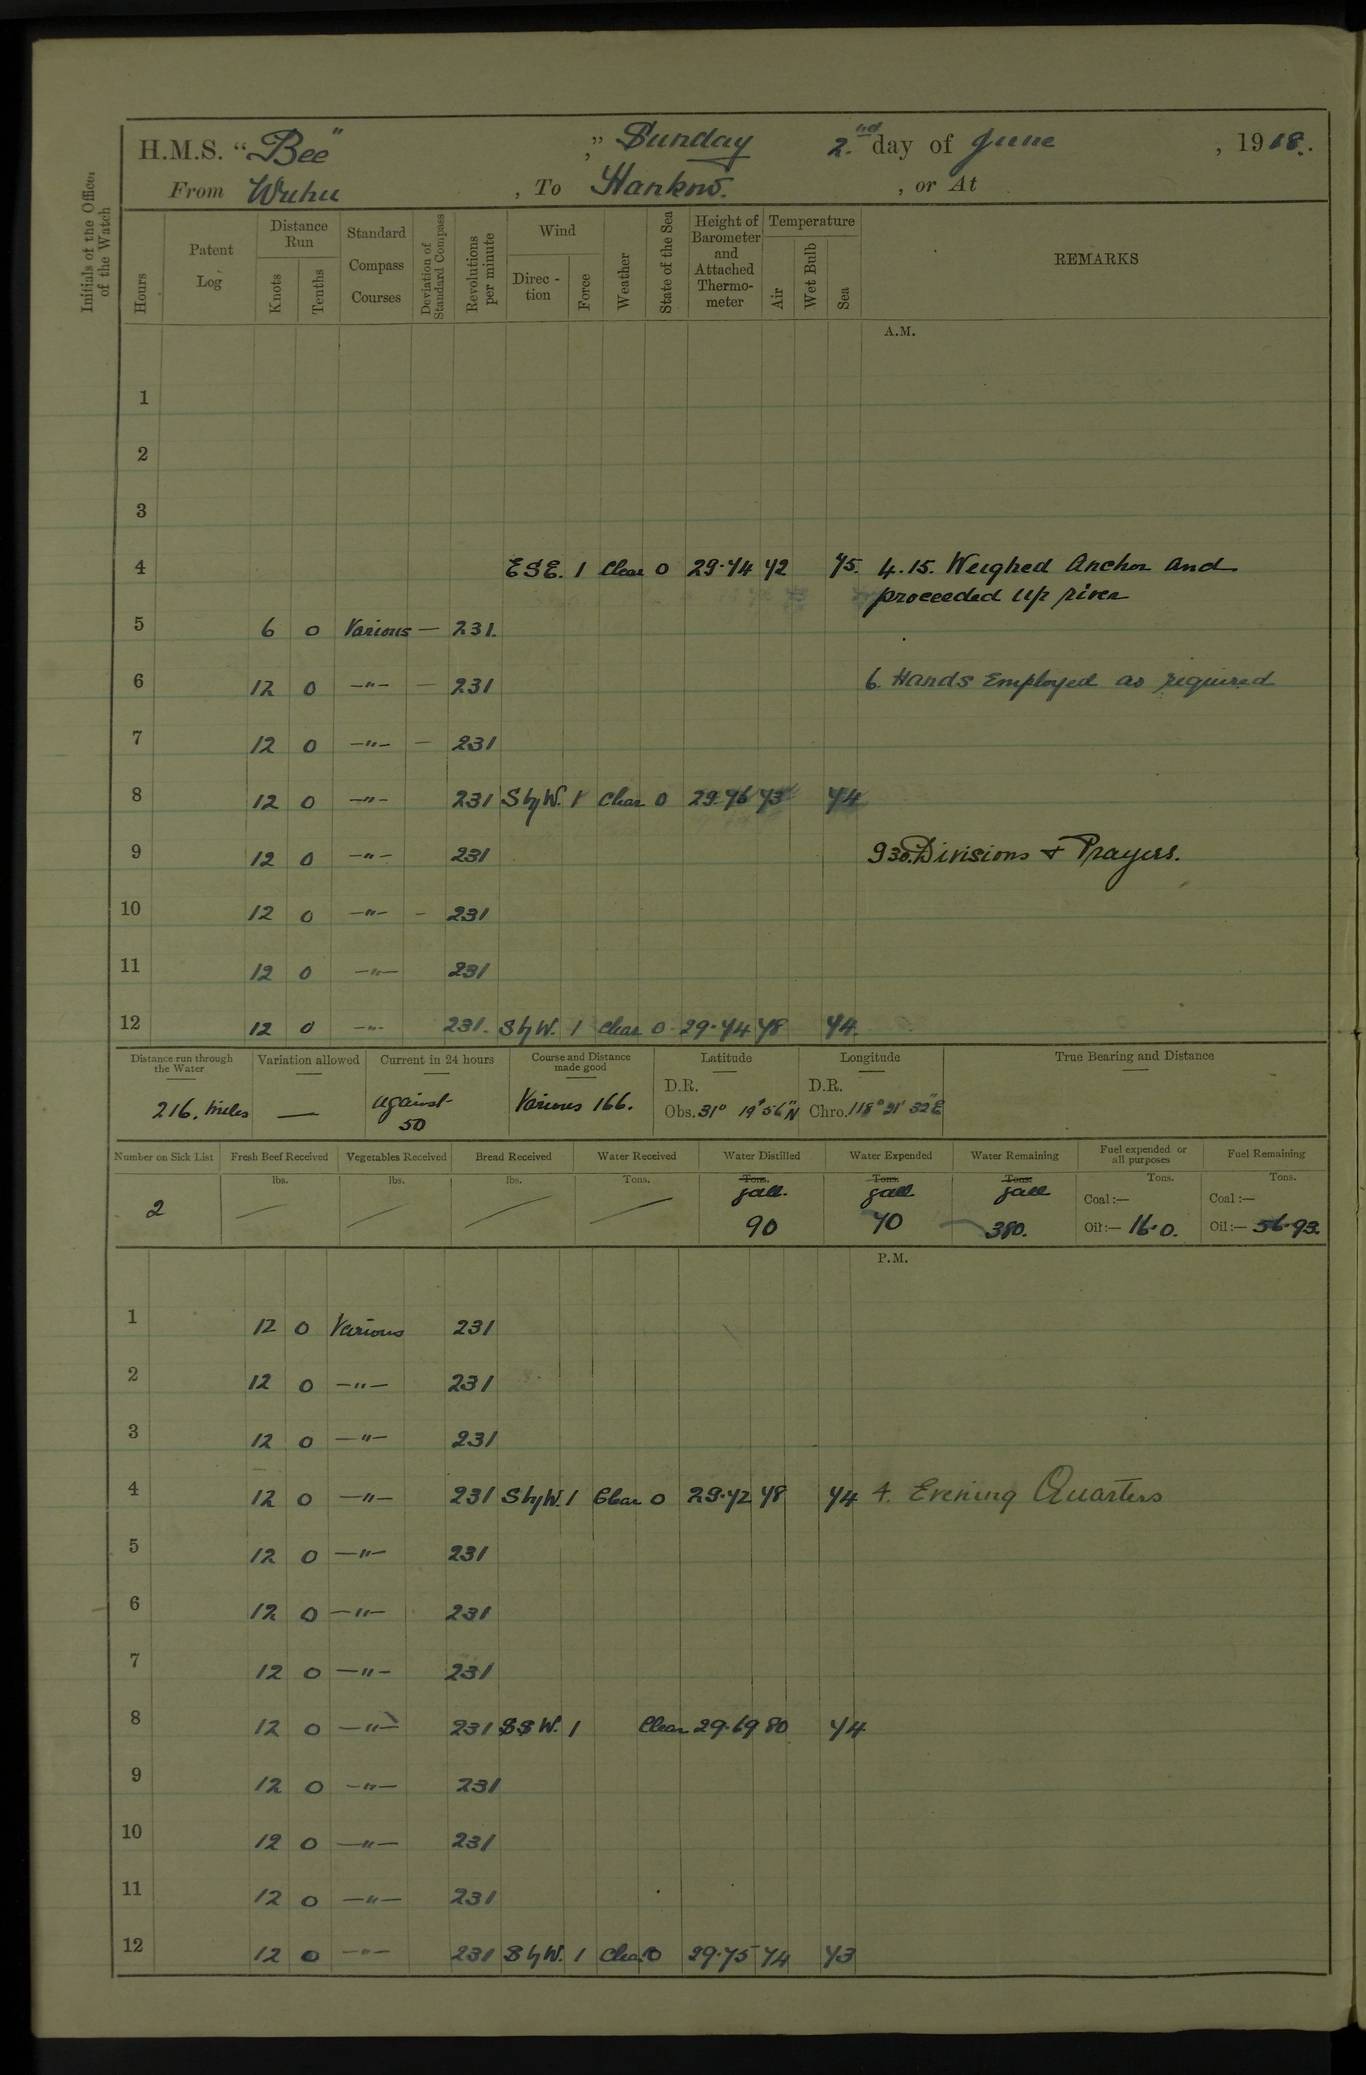 H.M.S. "Bee" ," Sunday 2.nd day of June , 1918.
From Wuhu , To Hankow. , or At
Initials of the Officer of the Watch
Hours
Patent Log
Distance Run
Knots
Tenths
Standard Compass Courses
Deviation of Standard Compass
Revolutions per minute
Wind
Direc-tion
Force
Weather
State of the Sea
Height of Barometer and Attached Thermo-meter
Temperature
Air
Wet Bulb
Sea
REMARKS
A.M.
1
2
3
4 ESE. 1 Clear 0 29.74 72 75. 4.15. Weighed Anchor and
proceeded up river
5 6 0 Various — 231.
6 12 0 —"— — 231 6. Hands Employed as required
7 12 0 —"— — 231
8 12 0 —"— 231 S by W. 1 Clear 0 29.76 73 74
9 12 0 —"— 231 9 30. Divisions & Prayers.
10 12 0 —"— — 231
11 12 0 —"— 231
12 12 0 —"— 231. S by W. 1 Clear 0 29.74 78 74.
Distance run through the Water
Variation allowed
Current in 24 hours
Course and Distance made good
Latitude
Longitude
True Bearing and Distance
D.R. D.R.
216. miles — against 50 Various 166. Obs. 31° 19' 56" N Chro. 118° 21' 32" E
Number on Sick List
Fresh Beef Received
Vegetables Received
Bread Received
Water Received
Water Distilled
Water Expended
Water Remaining
Fuel expended or all purposes
Fuel Remaining
lbs. lbs. lbs. Tons. Tons. Tons. Tons. Tons. Tons.
gall. gall gall Coal :— Coal :—
2 90 70 380. Oil :— 16.0. Oil :— 56.93.
P.M.
1 12 0 Various 231
2 12 0 —"— 231
3 12 0 —"— 231
4 12 0 —"— 231 S by W. 1 Clear 0 29.72 78 74 4. Evening Quarters
5 12 0 —"— 231
6 12 0 —"— 231
7 12 0 —"— 231
8 12 0 —"— 231 SSW. 1 Clear 29.69 80 74
9 12 0 —"— 231
10 12 0 —"— 231
11 12 0 —"— 231
12 12 0 —"— 231 S by W. 1 Clear 0 29.75 74 73